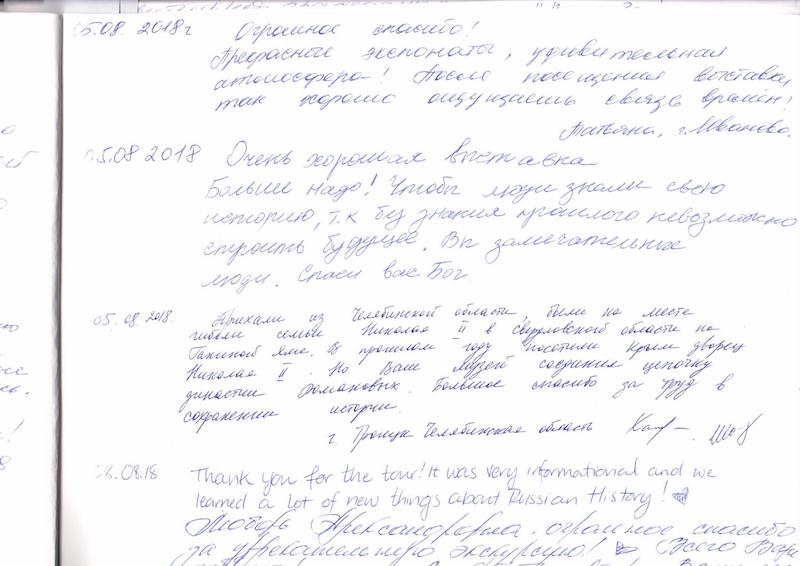 5.08.2018г Огромное спасибо!
Прекрасные экспонаты, удивительная
атмосфера! После посещения выставки
так хорошо ощущаешь связь времён!
Татьяна, г. Иваново.
5.08 2018 Очень хорошая выставка
Больше надо! Чтобы люди знали свою
историю, т.к без знания прошлого невозможно
строить будущее. Вы замечательные
люди. Спаси вас Бог.
05.08.2018. Приехали из Челябинской области, были на месте
гибели семьи Николая II в Свердловской области на
Ганиной Яме. В прошлом году посетили Крым дворец
Николая II. Но Ваш музей соединил цепочку
династии Романовых. Большое спасибо за труд в
сохранении истории.
г. Троицк Челябинская область
8.08.18 Thank you for the tour! It was very informational and we
learned a lot of new things about Russian History!
Любовь Александровна, огромное спасибо
за увлекательную экскурсию! Всего Вам